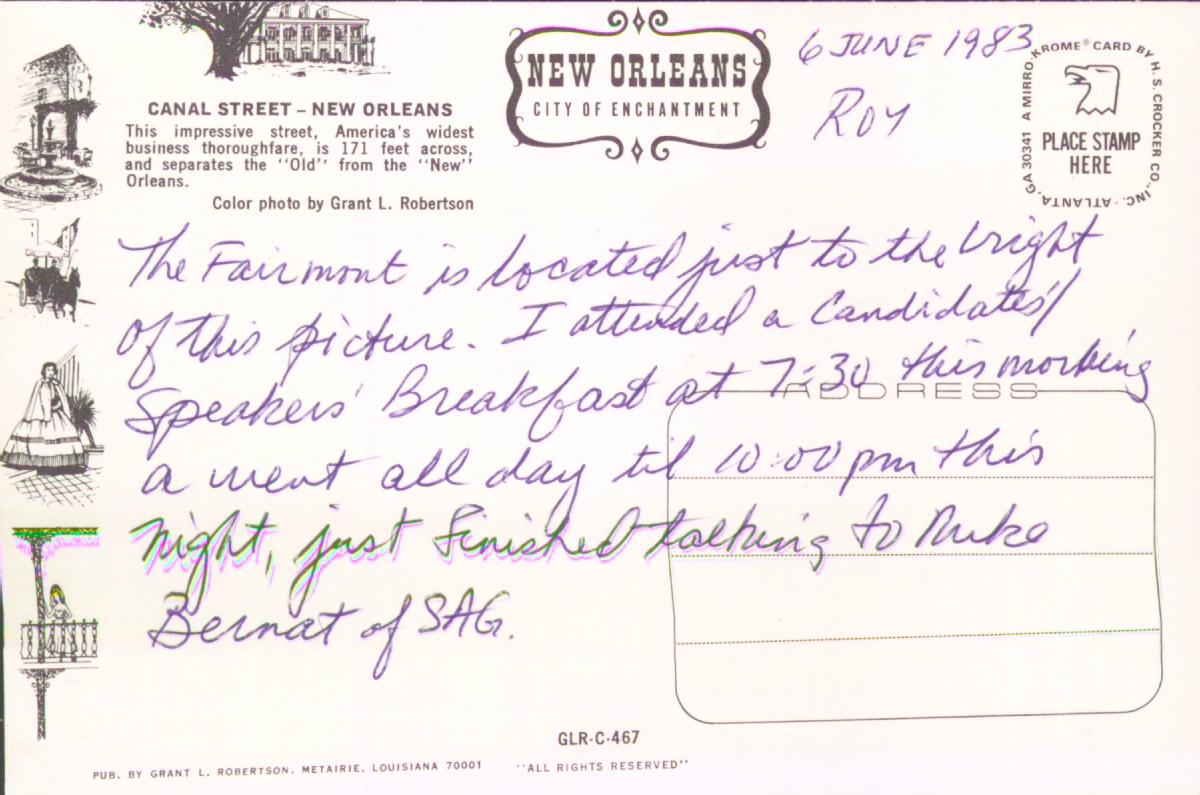 CANAL STREET – NEW ORLEANS
This impressive street, America's widest
business thoroughfare, is 171 feet across,
and separates the "Old" from the "New"
Orleans.
Color photo by Grant L. Robertson
NEW ORLEANS
CITY OF ENCHANTMENT
6 JUNE 1983
ROY
A MIRRO-KROME® CARD BY H. S. CROCKER CO., INC. · ATLANTA, GA 30341
PLACE STAMP
HERE
The Fairmont is located just to the bright
of this picture. I attended a Candidates'/
Speakers' Breakfast at 7:30 this morning
ADDRESS
a went all day til 10:00 pm this
night, just finished talking to Mike
Bernat of SAG.
GLR-C-467
PUB. BY GRANT L. ROBERTSON, METAIRIE, LOUISIANA 70001
"ALL RIGHTS RESERVED"